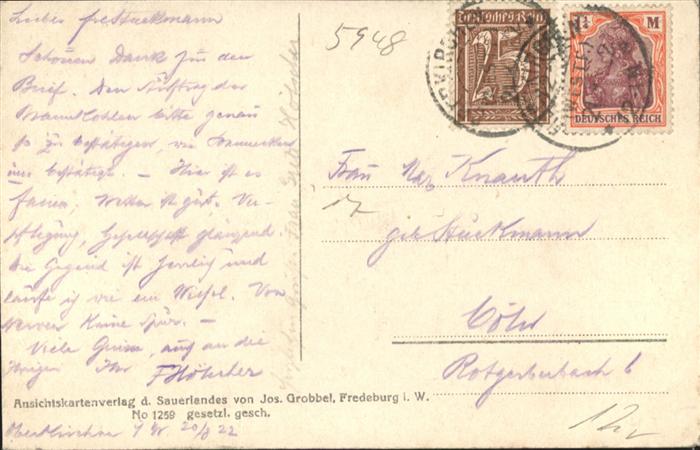 Liebes frl Stuckmann
Schönen Dank für den
Brief. Den Auftrag der
Braunkohlen bitte genau
so zu bestätigen, wie
uns bestätigt. — Hier ist es
famos, Wetter ist gut, Ver-
pflegung, Gesellschaft glänzend.
Die Gegend ist herrlich und
laufe ich wie ein Wiesel. Von
Nerven keine Spur. —
Viele Grüsse, auch an die
Ihrigen Ihr F Hölscher
Ansichtskartenverlag d. Sauerlandes von Jos. Grobbel, Fredeburg i. W.
No 1259 gesetzl. gesch.
i/W. 20/8 22
5948
Deutsches Reich
25
1¼ M
DEUTSCHES REICH
Frau Max Knauth
geb Stuckmann
Cöln
6